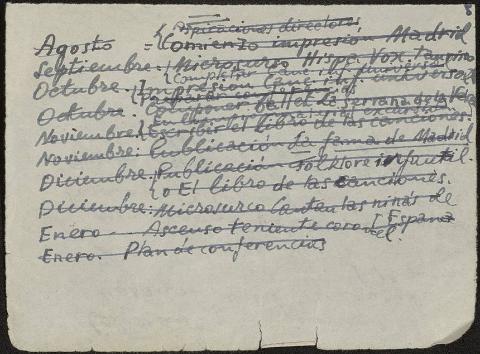 Aspiraciones directores
Agosto = Comienzo impresión Madrid
Septiembre: Microsurco Hispa Vox.
Completar Canc. inf. universal
Octubre. Impresion Canc. inf. universal
Octubre. Componer ballet La Serrana de la Vera
Noviembre. Escribir el libro de las canciones.
Noviembre: Publicación La fama de Madrid
Diciembre. Publicación Folklore infantil.
o El libro de las canciones.
Diciembre: Microsurco Cantan las niñas de
España
Enero Ascenso teniente coronel.
Enero. Plan de conferencias